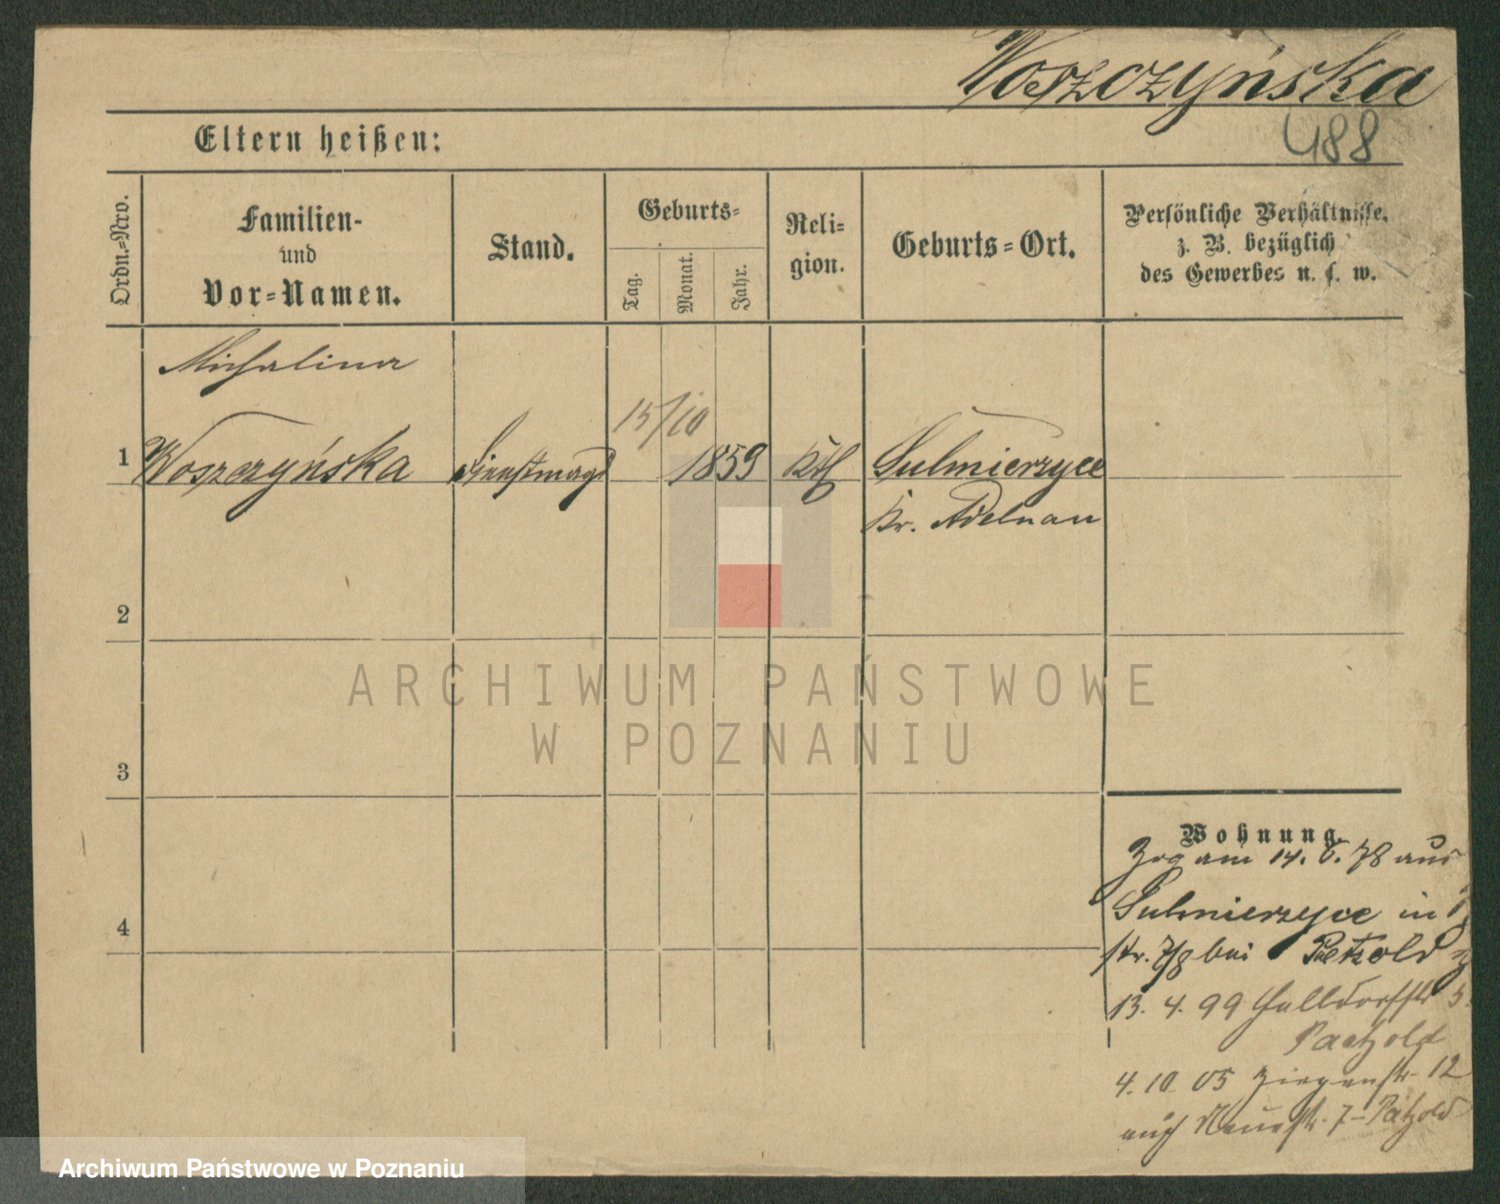 Woszczyńska
488
Eltern heißen:
Ordn.-Nro.
Familien-
und
Vor-Namen.
Stand.
Geburts-
Tag.
Monat.
Jahr.
Reli-
gion.
Geburts-Ort.
Persönliche Verhältnisse,
z. B. bezüglich
des Gewerbes u. s. w.
Michalina
15/10
1 Woszczyńska Dienstmagd 1859 Kth Sulmierzyce
Kr. Adelnau
2
3
4
ARCHIWUM PAŃSTWOWE
W POZNANIU
Wohnung.
Zog am 14. 6. 78 aus
Sulmierzyce in
str. 7/8 bei Petzold
13. 4. 99 Halldorfstr 5
Paetzold
4. 10 05 Ziegenstr 12
auch Neuestr. 7- Pätzold
Archiwum Państwowe w Poznaniu